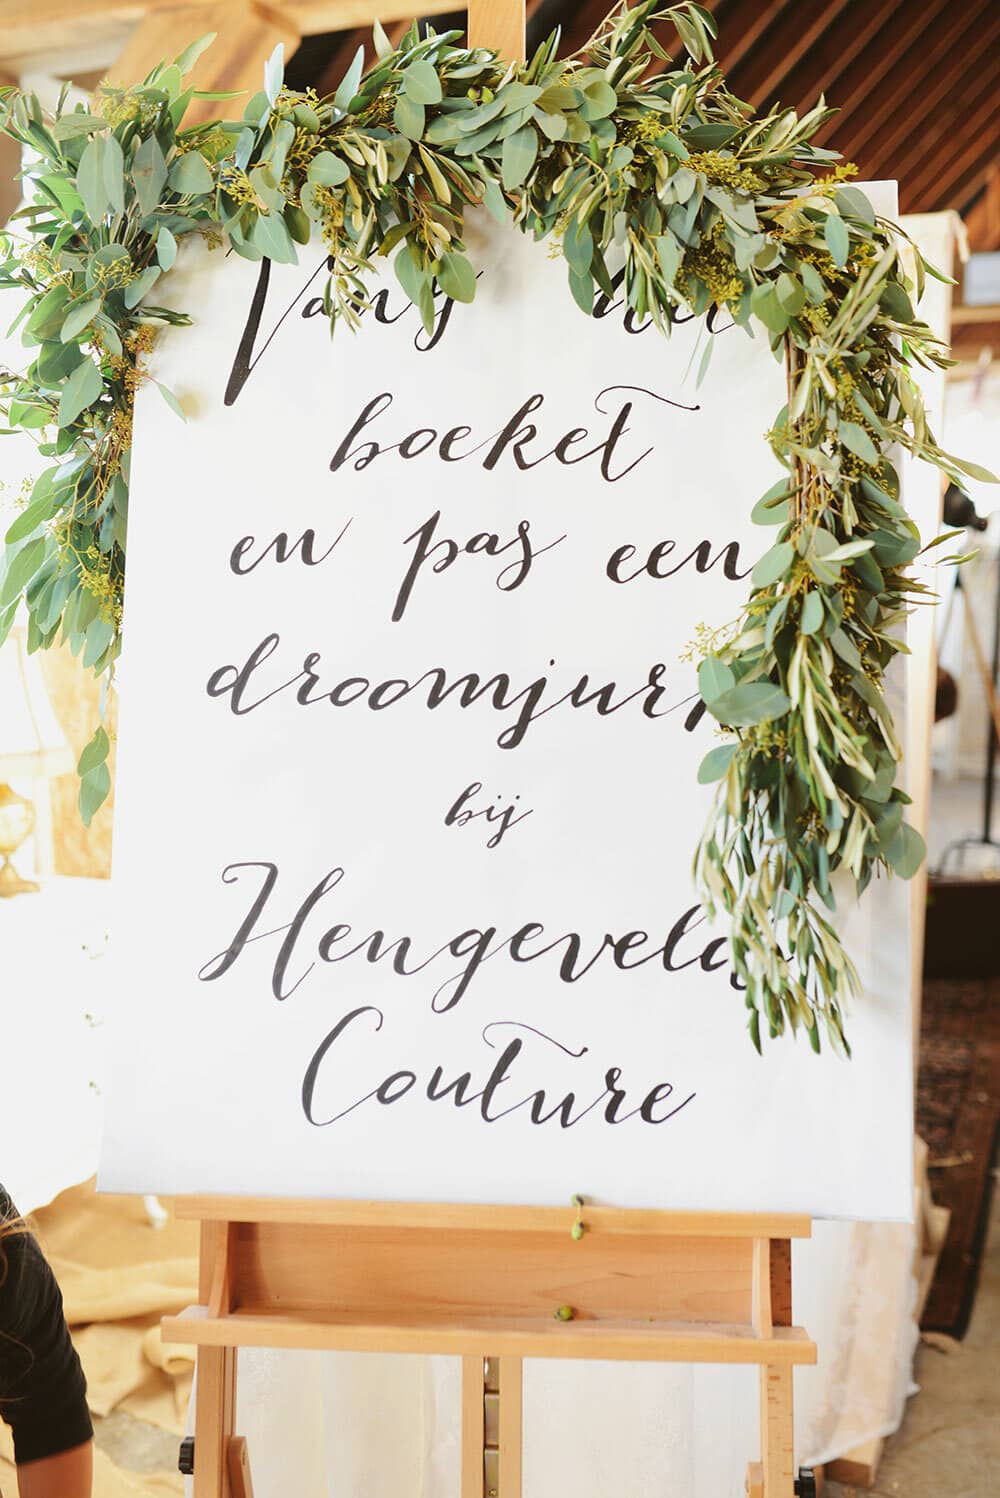 Vang het
boeket
en pas een
droomjurk
bij
Hengeveld
Couture